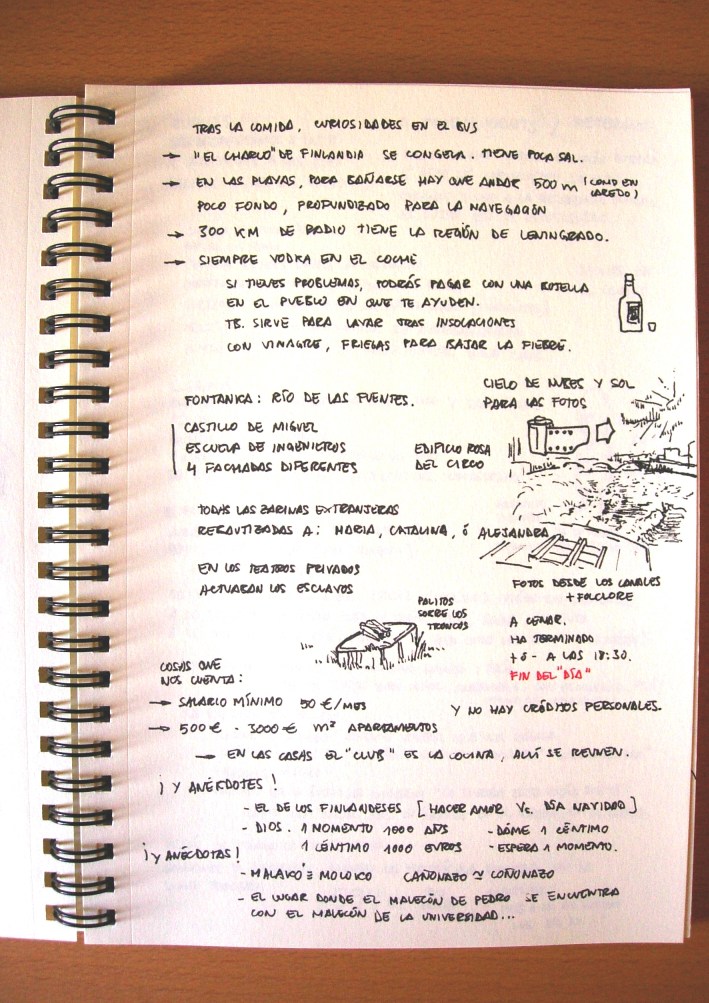 TRAS LA COMIDA, CURIOSIDADES EN EL BUS
→ "EL CHARCO" DE FINLANDIA SE CONGELA. TIENE POCA SAL.
→ EN LAS PLAYAS, PARA BAÑARSE HAY QUE ANDAR 500 m (COMO EN LAREDO)
POCO FONDO, PROFUNDIZADO PARA LA NAVEGACIÓN
→ 300 KM DE RADIO TIENE LA REGIÓN DE LENINGRADO.
→ SIEMPRE VODKA EN EL COCHE
SI TIENES PROBLEMAS, PODRÁS PAGAR CON UNA BOTELLA
EN EL PUEBLO EN QUE TE AYUDEN.
TB. SIRVE PARA LAVAR TRAS INSOLACIONES
CON VINAGRE, FRIEGAS PARA BAJAR LA FIEBRE.
CIELO DE NUBES Y SOL
PARA LAS FOTOS
FONTANKA: RÍO DE LAS FUENTES.
CASTILLO DE MIGUEL
ESCUELA DE INGENIEROS
4 FACHADAS DIFERENTES
EDIFICIO ROSA
DEL CIRCO
TODAS LAS ZARINAS EXTRANJERAS
REBAUTIZADAS A: MARIA, CATALINA, ó ALEJANDRA
EN LOS TEATROS PRIVADOS
ACTUABAN LOS ESCLAVOS
FOTOS DESDE LOS CANALES
+ FOLCLORE
PALITOS
SOBRE LOS
TRONCOS
A CENAR,
HA TERMINADO
+ ó - A LAS 18:30.
FIN DEL "DÍA"
COSAS QUE
NOS CUENTA:
→ SALARIO MÍNIMO 50 €/MES
Y NO HAY CRÉDITOS PERSONALES.
→ 500 € - 3000 € m² APARTAMENTOS
→ EN LAS CASAS EL "CLUB" ES LA COCINA, ALLÍ SE REUNEN.
¡Y ANÉCDOTES!
- EL DE LOS FINLANDESES [HACER AMOR VS. DÍA NAVIDAD]
- DIOS. 1 MOMENTO 1000 AÑS - DÁME 1 CÉNTIMO
1 CÉNTIMO 1000 EUROS - ESPERA 1 MOMENTO.
¡Y ANÉCDOTAS!
- MALAKÓ ≡ MOLOKO CAÑONAZO ≃ COÑONAZO
- EL LUGAR DONDE EL MALECÓN DE PEDRO SE ENCUENTRA
CON EL MALECÓN DE LA UNIVERSIDAD...